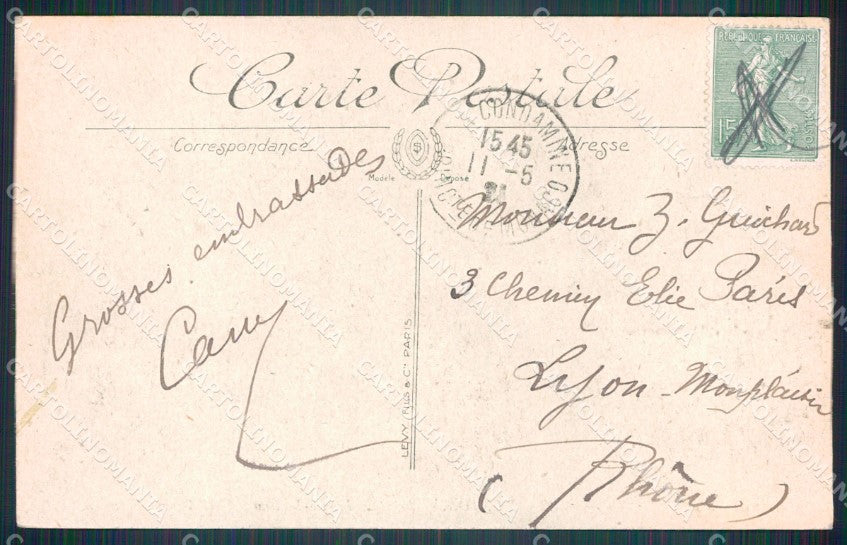 Carte Postale
Correspondance
Adresse
Modèle Déposé
S
RÉPUBLIQUE FRANÇAISE
15
POSTES
CONDAMINE
15 45
11 - 5
Grosses embrassades
Monsieur J. Guichard
3 Chemin Elie Paris
Lyon - Monplaisir
(Rhône)
LEVY FILS & Cie PARIS
CARTOLINOMANIA